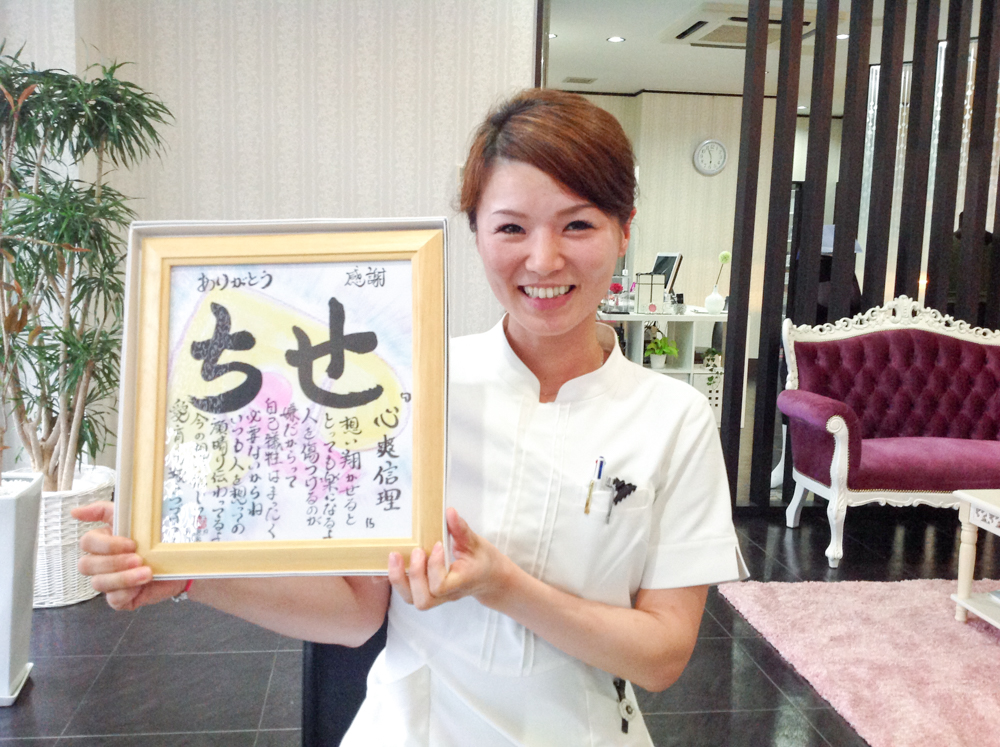 ありがとう 感謝
ちせ
『心爽信理
想い翔かせると
とっても楽になるよ
人を傷つけるのが
嫌だからって
自己犠牲はまったく
必要ないからね
いつも人を想っての
願晴り伝わってるよ
今の